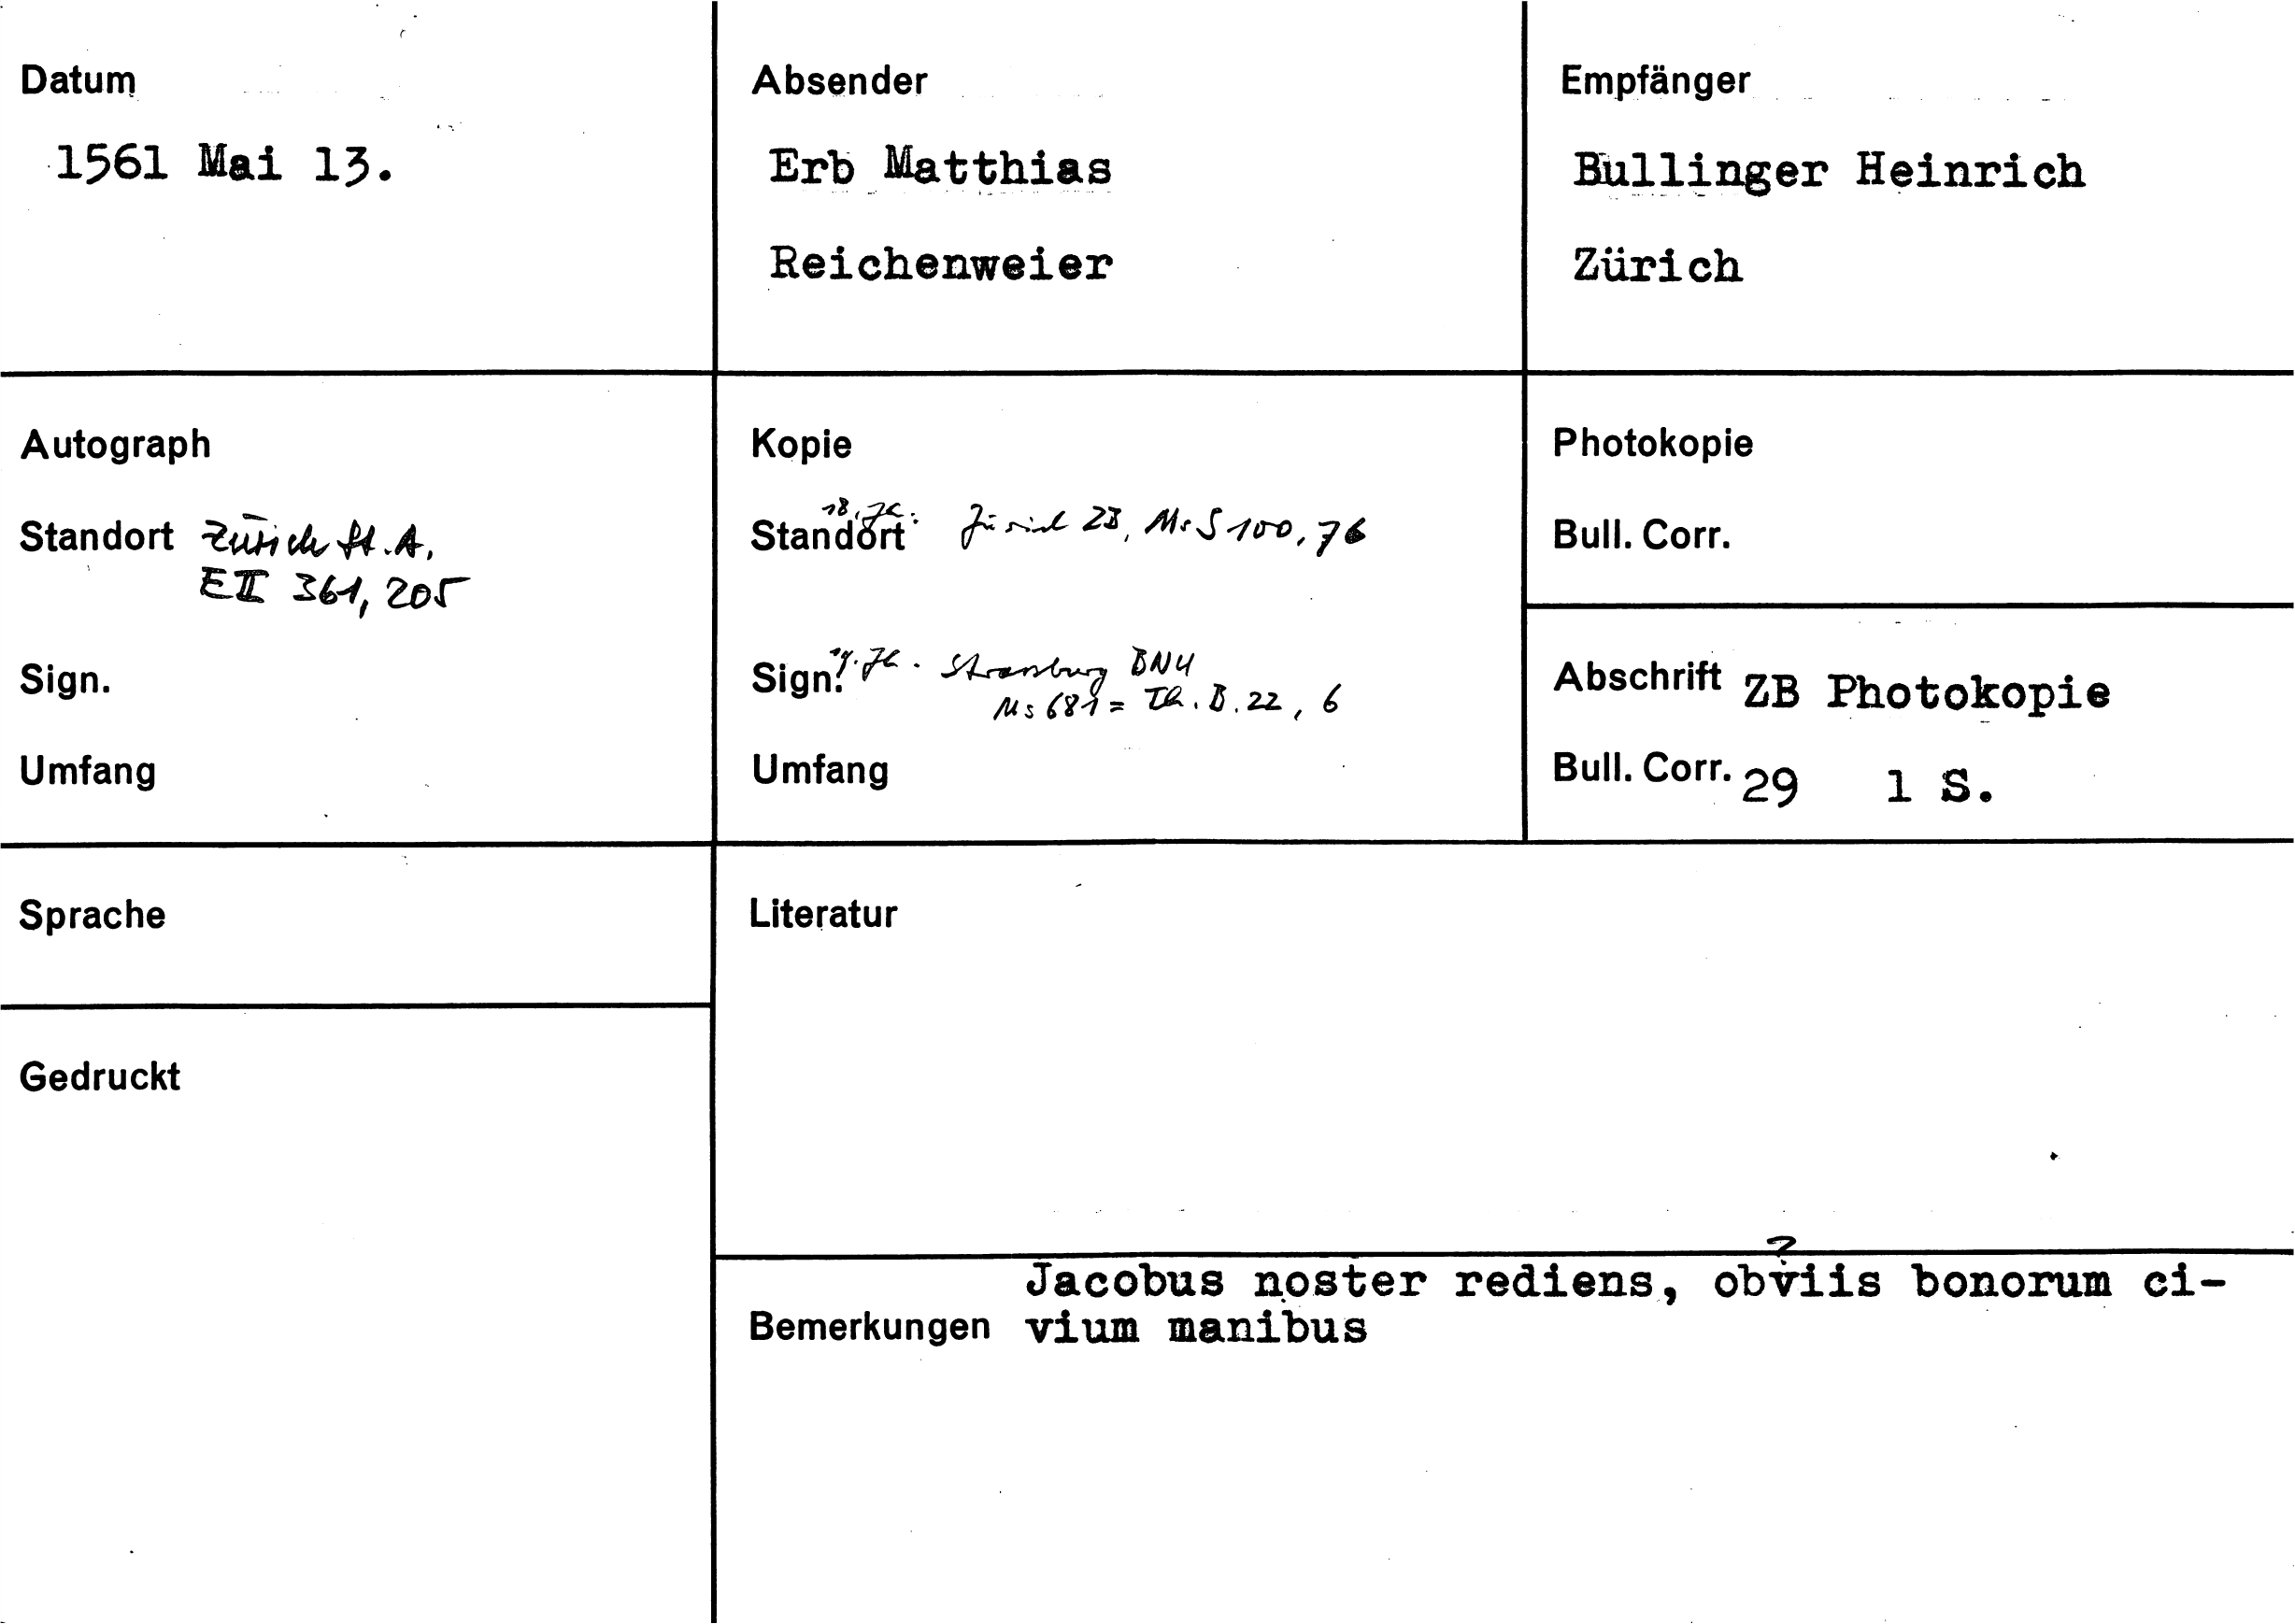 Datum
1561 Mai 13.
Absender
Erb Matthias
Reichenweier
Empfänger
Bullinger Heinrich
Zürich
Autograph
Standort Zürich St.A,
E II 361, 205
Sign.
Umfang
Kopie
18. Jh.:
Standort Zürich ZB, Ms S 100, 76
Sign. 19. Jh. Strassburg BNU
Ms 681 = Th. B. 22, 6
Umfang
Photokopie
Bull. Corr.
Abschrift ZB Photokopie
Bull. Corr. 29 1 S.
Sprache
Gedruckt
Literatur
?
Jacobus noster rediens, obviis bonorum ci-
Bemerkungen vium manibus